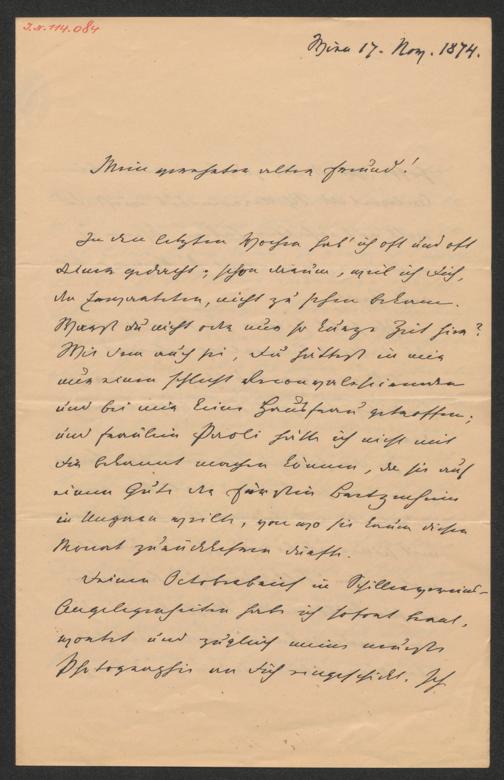 J.N. 114.084
Wien 17. Nov. 1874.
Mein verehrter alter Freund!
In den letzten Wochen hab' ich oft und oft
Deiner gedacht; schon darum, weil ich Dich,
den Erwarteten, nicht zu sehen bekam.
Warst du nicht oder nur so kurze Zeit hier?
Wie dem auch sei, du hättest in mir
nur einen schlecht Reconvalescirenden
und bei mir keine Hausfrau getroffen;
und Fräulein Paoli hätte ich nicht mit
dir bekannt machen können, da sie auf
einem Gute der Fürstin Bretzenheim
in Ungarn weilt, von wo sie kaum diesen
Monat zurückkehren dürfte.
Deinen Octoberbrief in Schillerverein-
Angelegenheiten habe ich sofort beant-
wortet und zugleich meine neueste
Photographie an Dich eingeschickt. Ich